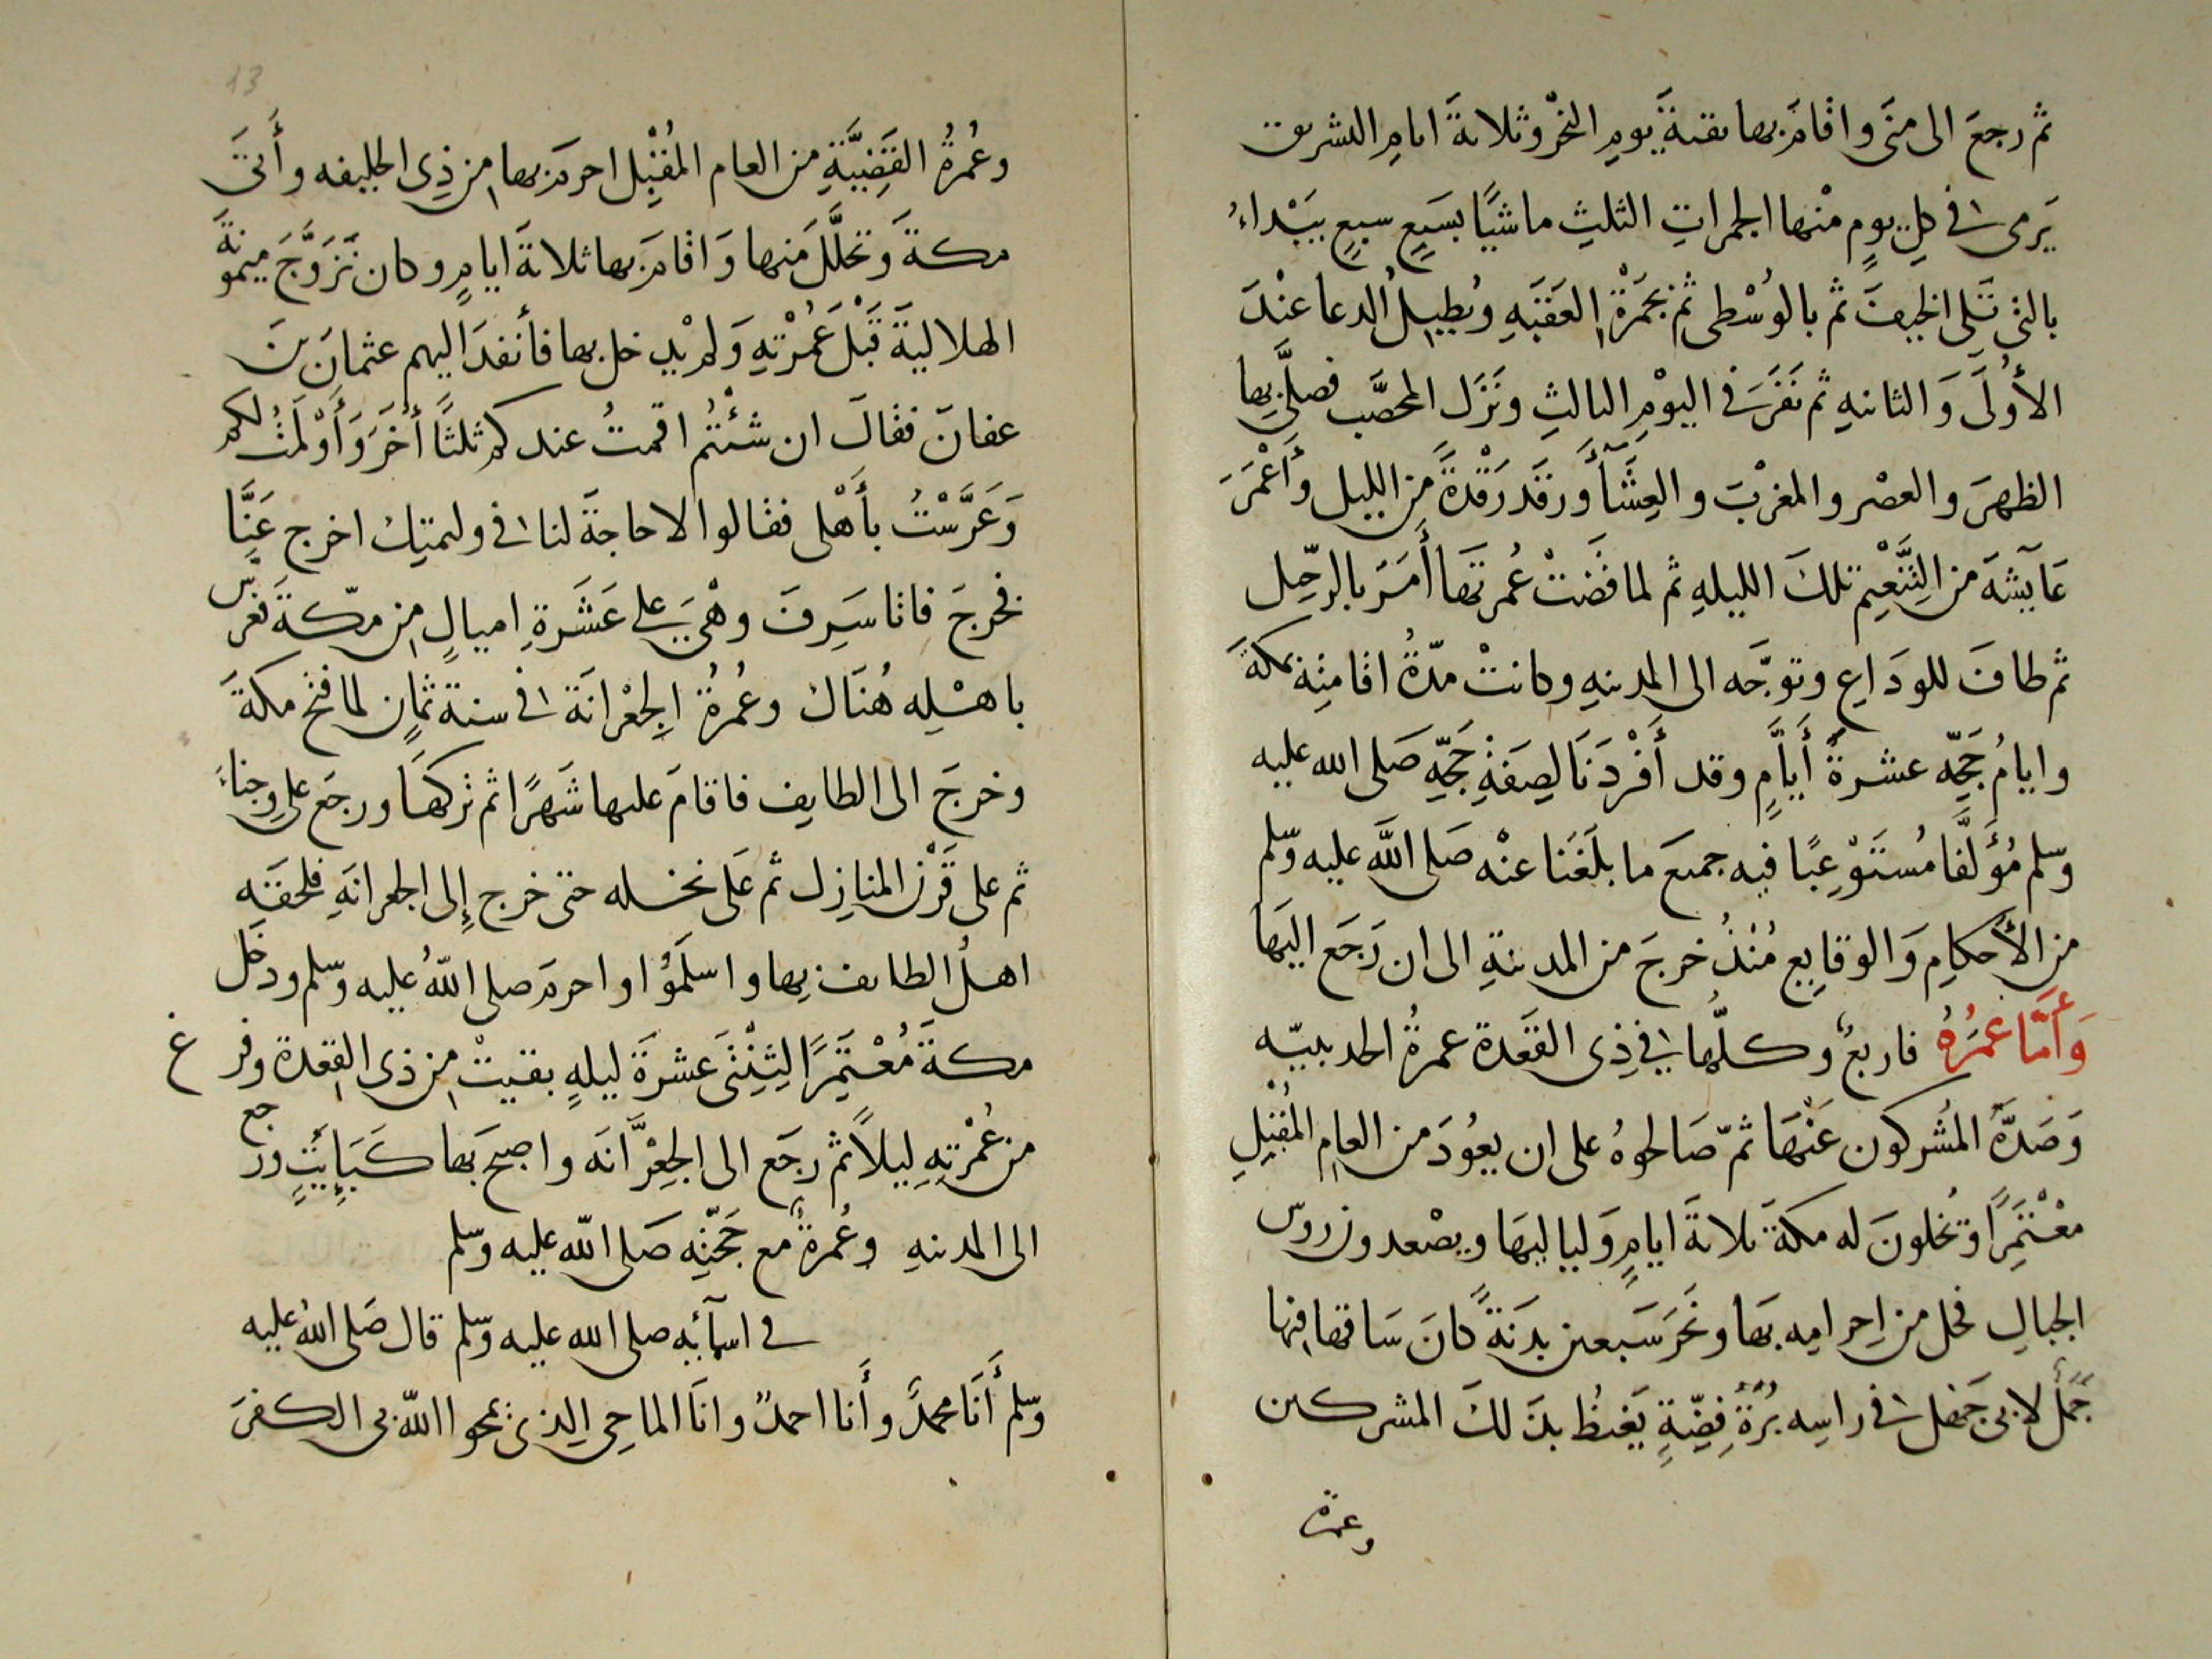 ثم رجعَ الى منَى واقامَ بها بقيةَ يومِ النحْرِ وثلاثةَ ايامِ التشريق
يَرمى فى كلِ يومٍ منْها الجمراتِ الثلثِ ماشيًا بسَبعٍ سبعٍ يبَبْداءُ
بالتى تَلى الخيفَ ثم بالوُسْطى ثم بجمَرْةِ العَقَبَهِ ويُطيلُ الدعا عنْدَ
الأُولَى وَالثانيهِ ثم نَفَرَ فى اليوْمِ الثالثِ ونَزَل المحصَّب فصلَّى بها
الظهرَ والعصْر والمغربْ والعِشَأَ وَرقَد رَقْدةً مِن الليل وأَعْمَرَ
عَآيشَةَ من التَّنَّعْيم تلكَ الليلهِ ثم لما قضَتْ عُمرتَها أَمَرَ بالرحّيل
ثم طافَ للودَاعِ وتوجَّه الى المدينهِ وكانتْ مدّةُ اقامتِه بمكةَ
وايامُ حَجِّه عشرةَ أيَّامٍ وقد أَفْردَنَا لِصِفَةِ حَجِّهِ صَلى الله عليه
وسلم مُؤَلَّفًا مُستَوْعِبًا فيه جميعَ ما بلَغَنا عنْه صَلى اللَّه عليه وسّلم
من الأحكامِ وَالوقايِع مُنْذُ خرجَ من المدينةِ الى ان رَجَع اليَها
وَأَمَّا عُمَرُهُ فاربعٌ وكلُّها فى ذِى القَعَدة عمرةُ الحديبيّه
وَصَدَّهُ المُشركون عَنْهَا ثمّ صَالحوهُ على ان يعُودَ من العامِ المُقْبِلِ
معْتَمِرًا وتُخلونَ له مكةَ ثلاثةَ ايامٍ وَلياليَها ويصْعدون روسَ
الجبالِ فحل من إحرامِه بَها ونَحَرَ سَبعين بدَنَةً كانَ سَاقها فيها
جَمَل لابى جَهْل فى راسِه بُرَةُ فِضّةٍ يَغيظُ بذَلكَ المشركين
وعمرة
13
وعُمرةُ القَضِيَّةِ من العام المُقْبِل احرمَ بها مِن ذِى الحليفه وأَتَى
مكةَ وَتحلَّلَ مَنها وَاقامَ بها ثلاثةَ ايامٍ وكان تَزَوَّجَ ميمُونةَ
الهلاليةَ قَبْلَ عُمْرْتهِ وَلم يْدخل بها فأنفدَ اليهم عثمانَ بنَ
عفانَ فقالَ ان شئْتُم اقمتُ عندكم ثلثًا أُخَرَ وَأَوْلَمتُ لكم
وَعَرَّسْتُ بأَهْلى فقالوا لا حاجةَ لنا فى وليمتِك اخرج عَنَّا
فخرجَ فاتا سَرِفَ وهْىَ على عَشَرةِ اميالٍ مِن مكّةَ فعَرّس
باهْلِه هُنَاك وعُمرةُ الجِعْرانَة فى سنة ثمانٍ لما فتح مكةَ
وخرجَ الى الطايِف فاقامَ عليها شَهرًا ثم تركَهَا ورجعَ على وجناءَ
ثم على قَرْن المنازِل ثم عَلى نخله حتى خرج إلى الجعرانَهِ فلحقَه
اهلُ الطايف بها واسلمَوُا واحرمَ صلى اللّهُ عليه وسّلم ودخَل
مكةَ مُعْتَمِرًا لِثِنْتَى عَشرَةَ ليلهٍ بقيتْ مِن ذى القعدة وفرغ
من عُمْرتِهِ ليلاً ثم رجَع الى الجِعِرَّانَه واصبح بَها كَبَايِتٍ ورجع
الى المدينهِ وعُمرةٌ مع حَجَّتِه صَلى اللّه عليه وسّلم
فى اسمآئِه صلى الله عليه وسّلم قال صَلى اللهُ عليه
وسّلم أَنَا محمدٌ وأَنا احمدٌ وانَا الماحِى الِذى يمحوا اللَّه بى الكفرَ